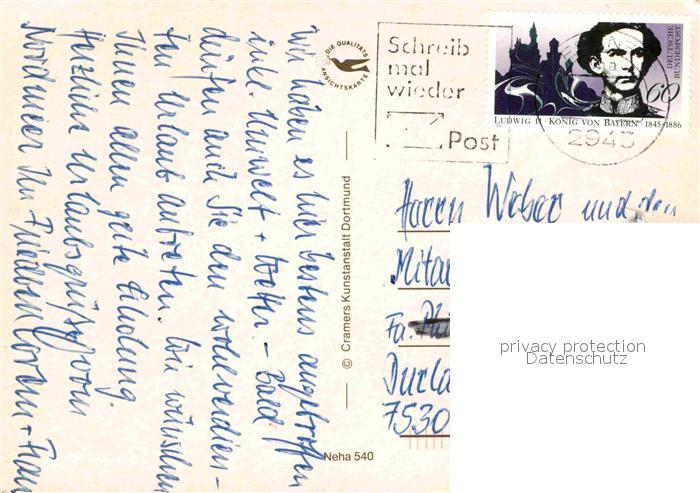 Wir haben es hier bestens angetroffen
inkl. Umwelt + Wetter. – Bald
dürfen auch Sie den wohlverdien-
ten Urlaub antreten. Wir wünschen
Ihnen allen gute Erholung.
Herzliche Urlaubsgrüße vom
Nordmeer Ihr Frau
DIE QUALITÄTS
ANSICHTSKARTE
© Cramers Kunstanstalt Dortmund
Neha 540
Schreib
mal
wieder
Post
DEUTSCHE
BUNDESPOST
60
LUDWIG II · KÖNIG VON BAYERN 1845-1886
2943
Herrn Weber und den
Mitar
Fa.
Durla
7530
privacy protection
Datenschutz